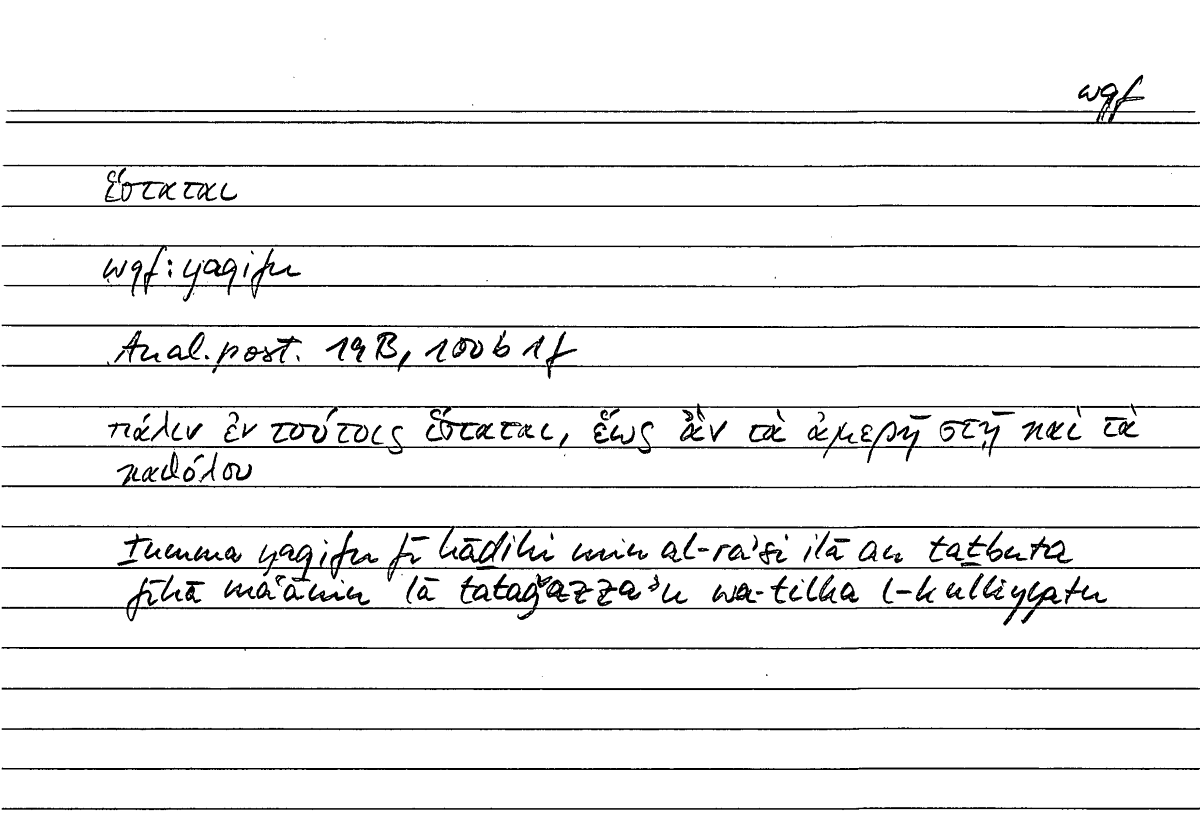 wqf
ἵσταται
wqf: yaqifu
Anal. post. 19B, 100b1f
πάλιν ἐν τούτοις ἵσταται, ἕως ἂν τὰ ἀμερῆ στῇ καὶ τὰ
καθόλου
ṯumma yaqifu fī hāḏihi min al-ra'si ilā an taṯbuta
fīhā maʿānin lā tataǧazza'u wa-tilka l-kulliyyatu